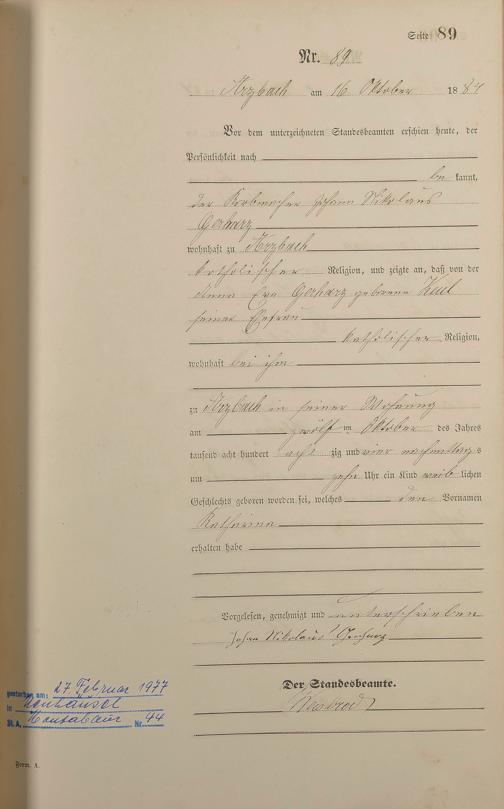 Seite 89
Nr. 89
Arzbach am 16 Oktober 1884
Vor dem unterzeichneten Standesbeamten erschien heute, der
Persönlichkeit nach
be kannt,
der Korbmacher Johann Nikolaus
Gerharz
wohnhaft zu Arzbach
katholischer Religion, und zeigte an, daß von der
Anna Eva Gerharz geborene Keul
seiner Ehefrau
katholischer Religion,
wohnhaft bei ihm
zu Arzbach in seiner Wohnung
am zwölf ten Oktober des Jahres
tausend acht hundert acht zig und vier nachmittags
um zehn Uhr ein Kind weib lichen
Geschlechts geboren worden sei, welches den Vornamen
Katharina
erhalten habe
Vorgelesen, genehmigt und unterschrieben
Johan Nikolaus Gerharz
Der Standesbeamte.
gestorben am: 27. Februar 1977
in Neuhäusel
St.A. Montabaur Nr. 44
Form. A.